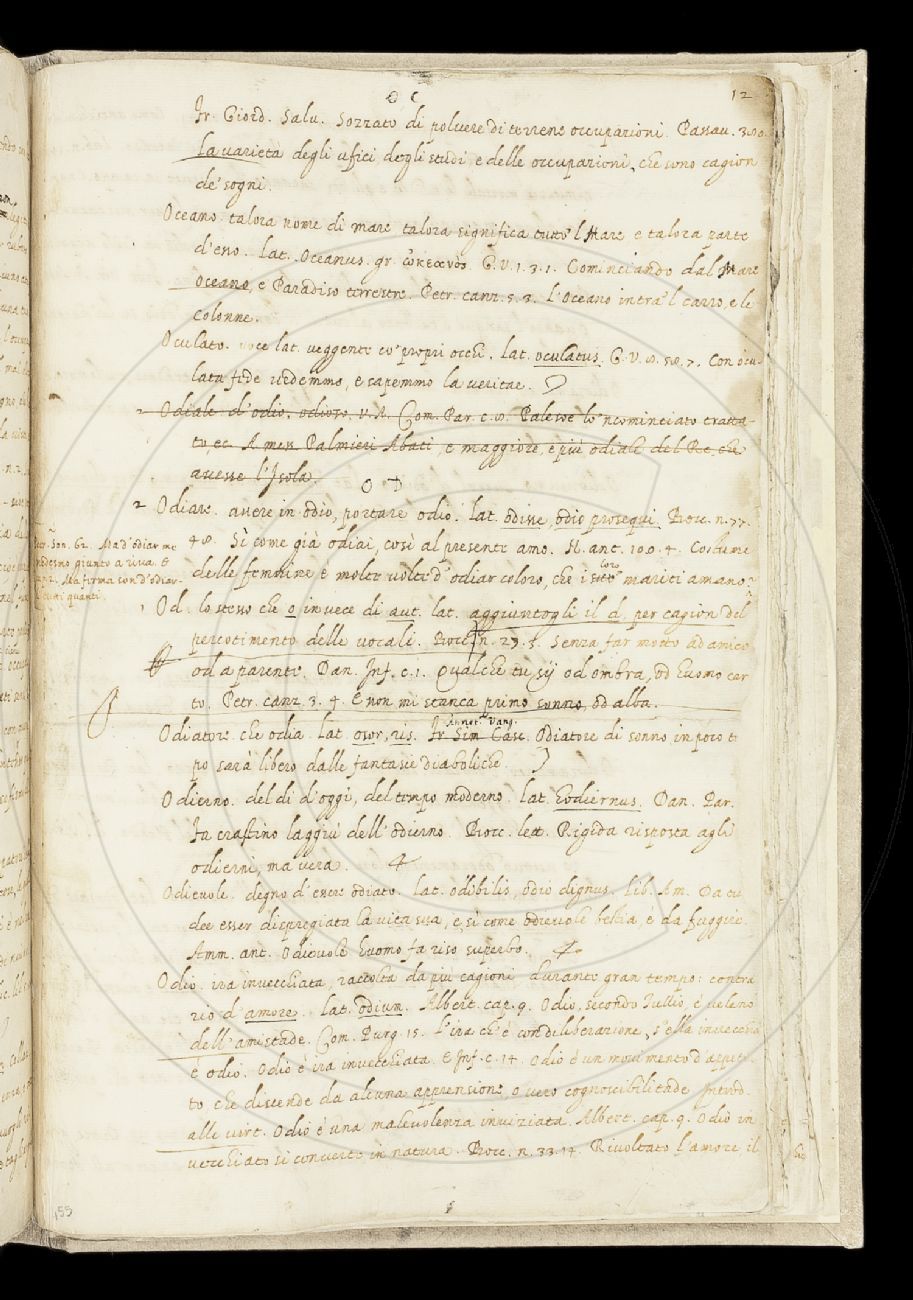 O C
12
Fr. Giord. Salu. Sozzato di poluere di terrene occupazioni. Passau. 340.
La varietà degli ufici degli studi e delle occupazioni, che sono cagion
de' sogni.
Oceano. talora nome di mare talora significa tutto 'l Mare e talora parte
d'esso. Lat. Oceanus. gr. ὠκεανὸσ G.V.1.3.1. Cominciando dal Mare
Oceano, e Paradiso terrestre. Petr. canz. 5. 3. L'Oceano intra 'l carro, e le
colonne.
Oculato. voce lat. veggente co' propri occhi. Lat. oculatus. G.V. 8. 58. 7. Con ocu-
lata fide vedemmo, e sapemmo la veritae.
Odiale d'odio, odioso. V.A. Com. Par. c. 8. Palesoe lo 'ncominciato tratta-
to, ec. A mess. Palmieri Abati, e maggiore, e più odiale del Re, che
avesse l'Isola.
O D
2 Odiare. avere in odio, portare odio. Lat. odisse, odio prosequi. Bocc. n. 77.
48. Sì come già odiai, così al presente amo. N. ant. 100. 4. Costume
Petr. Son. 62. Ma d'odiar me
medesmo giunto a riva. E
canz. Ma ferma son d'odiar-
li tutti quanti.
delle femmine è molte volte d'odiar coloro, che i loro mariti amano.
1 Od. lo stesso che o in vece di aut. lat. aggiuntogli il d, per cagion del
percotimento delle vocali. Bocc. n. 23. 5. Senza far motto ad amico
od a parente. Dan. Inf. c. 1. Qualche tu sij od ombra, od huomo cer
to. Petr. canz. 3. 4. E non mi stanca primo sonno, od alba.
Annot. Vang.
Odiatore che odia. Lat. osor, ris. Fr. Sim. Casc. Odiatore di sonno in poco te
po sarà libero dalle fantasie diaboliche.
Odierno. del dì d'oggi, del tempo moderno. Lat. hodiernus. Dan. Par.
Fa crastino laggiù dell'odierno. Bocc. lett. Rigida risposta agli
odierni, ma vera.
Odievole. degno d'essere odiato. Lat. odibilis, odio dignus. Lib. Am. Da cu
dee esser dispregiata la vita sua, e sì come odievole bestia, è da fuggire.
Amm. ant. Odievole huomo fa riso superbo.
Odio. ira invecchiata, raccolta da più cagioni durante gran tempo: contra
rio d'amore. Lat. odium. Albert. cap. 9. Odio, secondo Tullio, è veleno
dell'amistade. Com. Purg. 15. L'ira ch'è con diliberazione, s'ella invecchia
è odio. Odio è ira invecchiata. E Inf. c. 14. Odio è un movimento d'appeti
to, che discende da alcuna apprensione, o vero cognoscibilitade Introd.
alle virt. Odio è una malevolenza inviziata. Albert. cap. 9. Odio in
vecchiato si converte in natura. Bocc. n. 33. 14. Rivoltato l'amore il
155